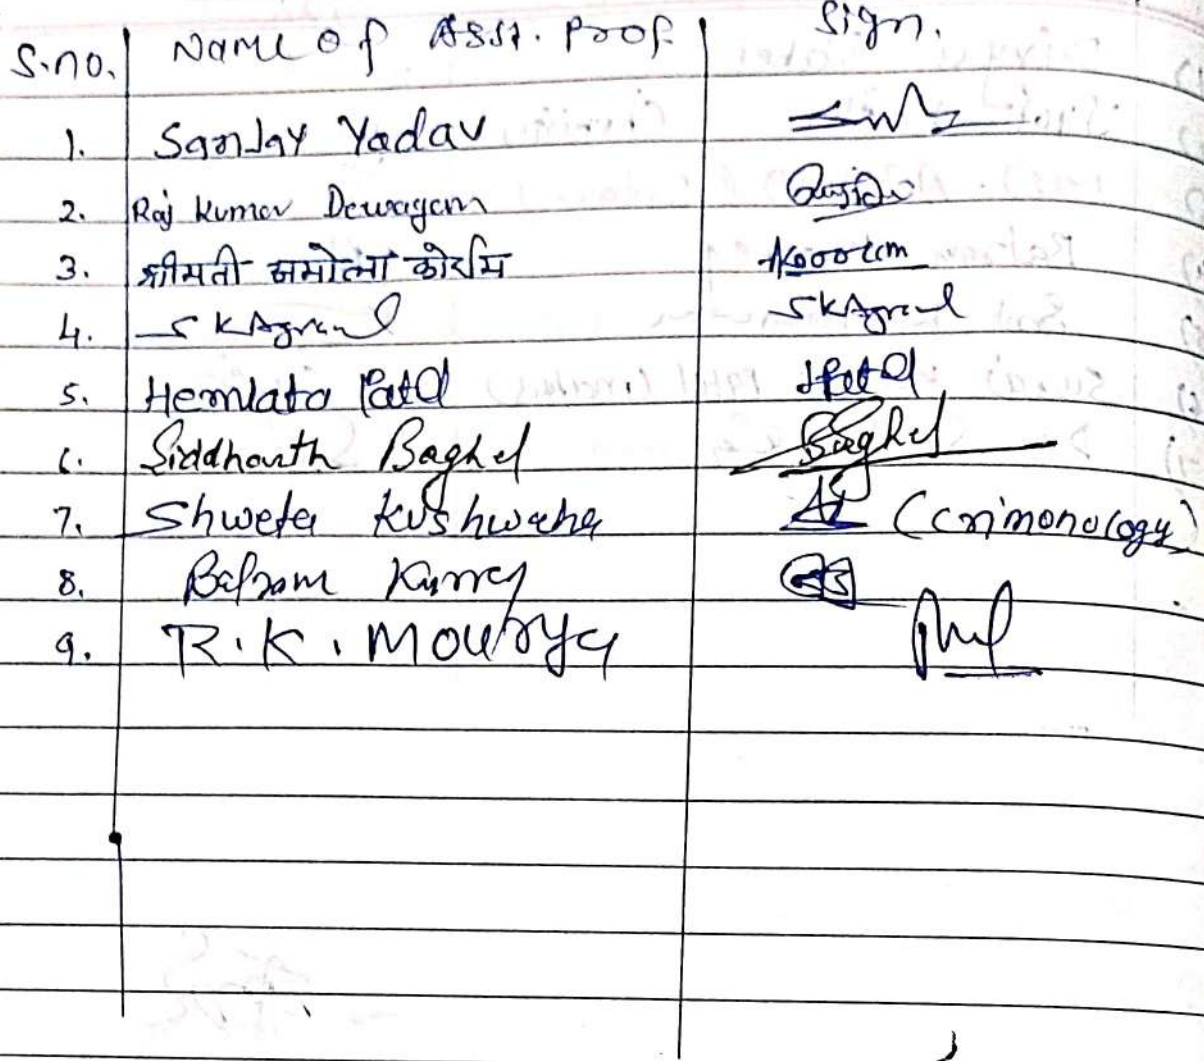 S.no. Name of Asst. Prof. Sign.
1. Sanjay Yadav
2. Raj Kumar Dewagam
3. श्रीमती जमोत्मा कोर्राम Koorram
4. S K Agrawal S K Agrawal
5. Hemlata Patel HPatel
6. Siddhanth Baghel Baghel
7. Shweta Kushwaha (crimonology)
8. Balram Kurrey
9. R. K. Mourya